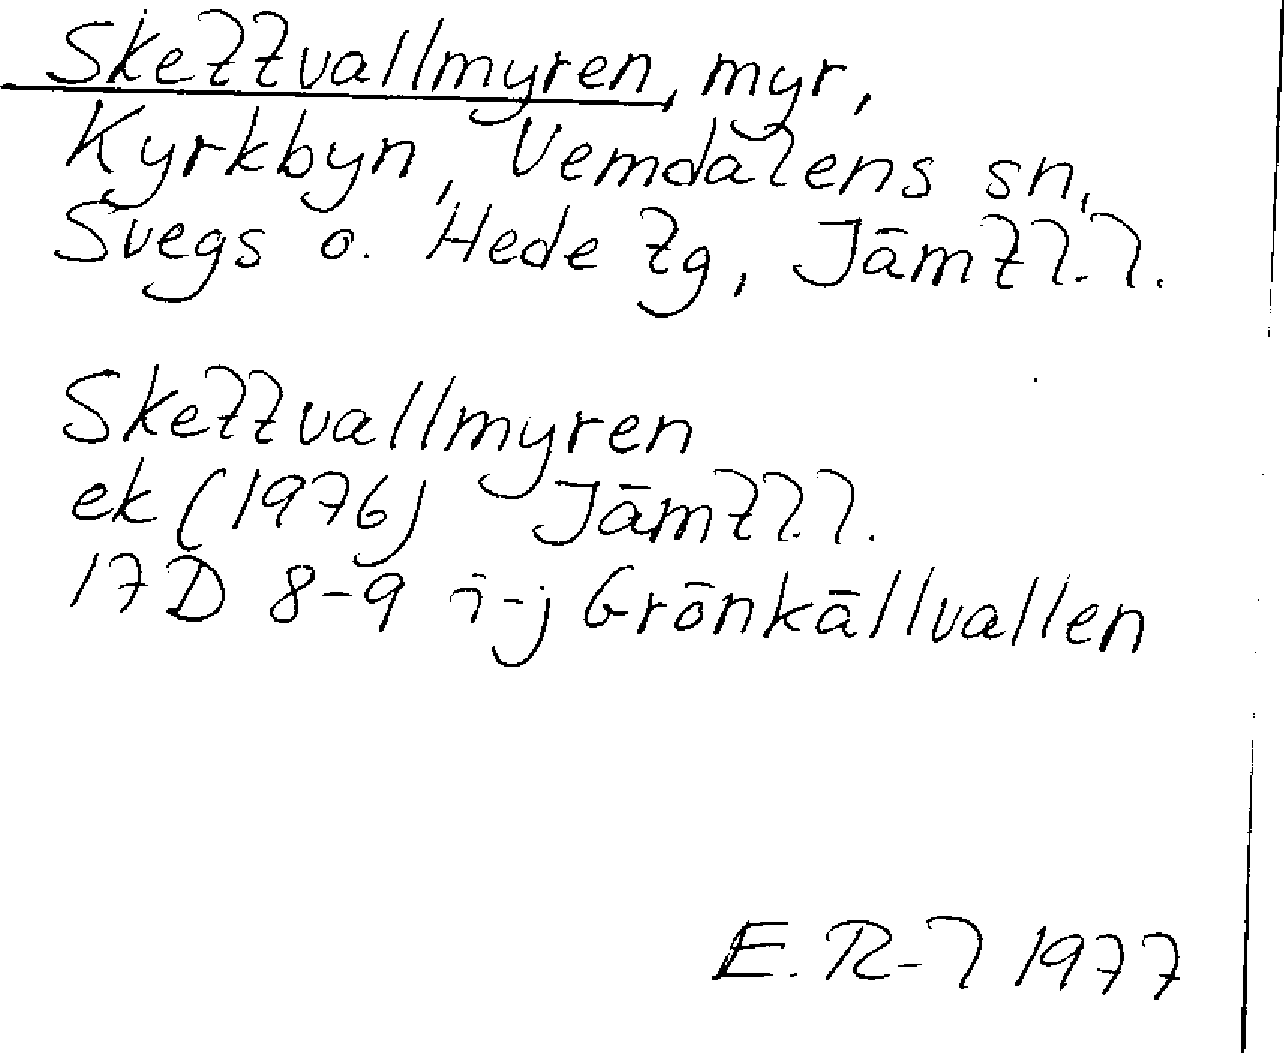 Skettvallmyren, myr,
Kyrkbyn, Vemdalens sn,
Svegs o. Hede tg, Jämtl. l.
Skettvallmyren
ek (1976) Jämtl. l.
17D 8-9 i-j Grönkällvallen
E. R-l 1977